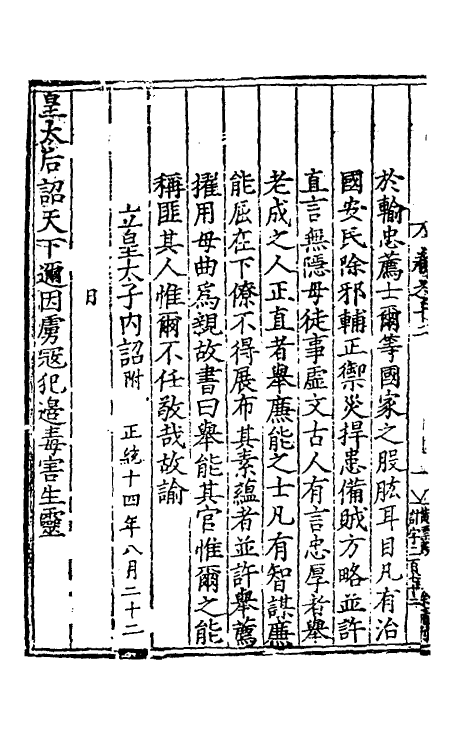 於輸忠薦士爾等國家之股肱耳目凡有治
國安民除邪輔正禦災捍患備賊方略並許
直言無隱毋徒事虛文古人有言忠厚者舉
老成之人正直者舉廉能之士凡有智謀廉
能屈在下僚不得展布其素蘊者並許舉薦
擢用毋曲爲親故書曰舉能其官惟爾之能
稱匪其人惟爾不任敬哉故諭
立皇太子內詔附 正統十四年八月二十二
日
皇太后詔天下邇因虜寇犯邊毒害生靈